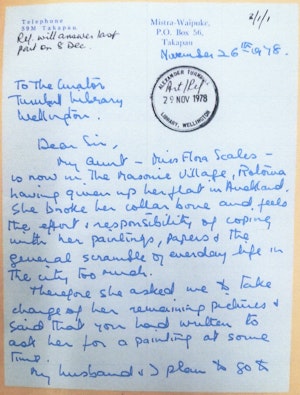 Telephone
SSM Takapau
Mistra-Waipuke,
P.O. Box 56,
Takapau
2/1/1
Ref. will answer last
part on 8 Dec.
November 26th 1978.
To The Curator
Turnbull Library
Wellington.
ALEXANDER TURNBULL
Art/Ref
29 NOV 1978
LIBRARY, WELLINGTON
Dear Sir,
My aunt - Miss Flora Scales -
is now in the Masonic Village, Rotorua
having given up her flat in Auckland.
She broke her collar bone and feels
the effort & responsibility of coping
with her paintings, papers & the
general scramble of everyday life in
the city too much.
Therefore she asked me to take
charge of her remaining pictures &
said that you had written to
ask her for a painting at some
time.
My husband & I plan to go to